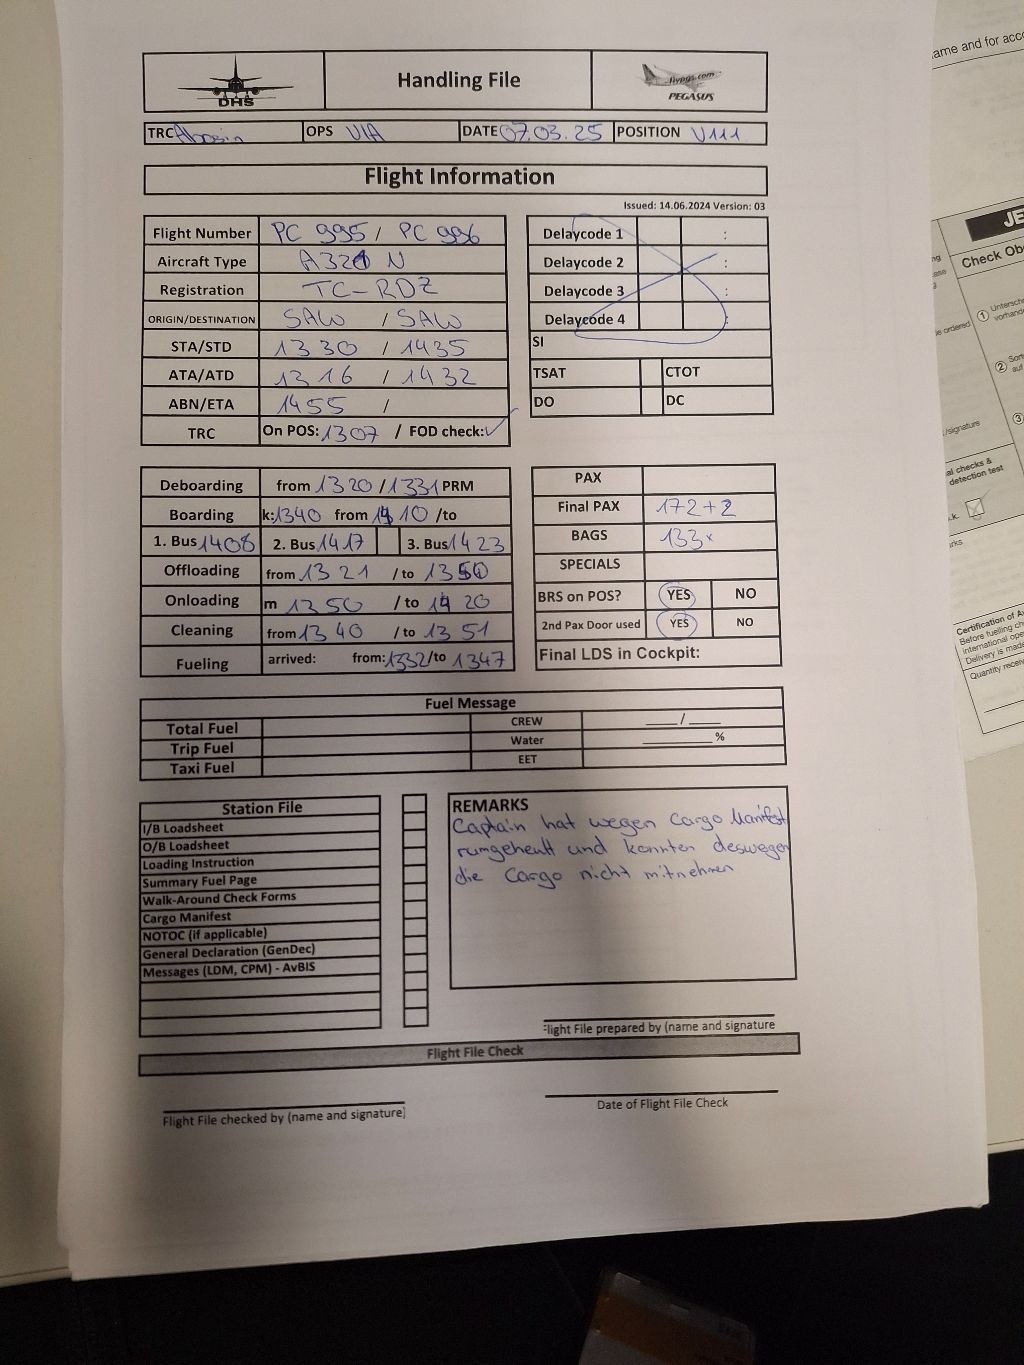 ame and for acco
DHS
Handling File
flypgs.com
PEGASUS
TRC
OPS VIA
DATE 07.03.25
POSITION V111
Flight Information
Issued: 14.06.2024 Version: 03
Flight Number PC 995 / PC 996
Aircraft Type A321 N
Registration TC-RDZ
ORIGIN/DESTINATION SAW / SAW
STA/STD 1330 / 1435
ATA/ATD 1316 / 1432
ABN/ETA 1455 /
TRC On POS: 1307 / FOD check: ✓
Delaycode 1 :
Delaycode 2 :
Delaycode 3 :
Delaycode 4 :
SI
TSAT CTOT
DO DC
Deboarding from 1320 / 1331 PRM
Boarding k: 1340 from 1410 /to
1. Bus 1408 2. Bus 1417 3. Bus 1423
Offloading from 1321 / to 1350
Onloading m 1350 / to 1420
Cleaning from 1340 / to 1351
Fueling arrived: from: 1332/to 1347
PAX
Final PAX 172+2
BAGS 133x
SPECIALS
BRS on POS? YES NO
2nd Pax Door used YES NO
Final LDS in Cockpit:
Fuel Message
Total Fuel CREW ____/____
Trip Fuel Water ________%
Taxi Fuel EET
Station File
I/B Loadsheet
O/B Loadsheet
Loading Instruction
Summary Fuel Page
Walk-Around Check Forms
Cargo Manifest
NOTOC (if applicable)
General Declaration (GenDec)
Messages (LDM, CPM) - AvBIS
REMARKS
Captain hat wegen Cargo Manifest
rumgeheult und konnten deswegen
die Cargo nicht mitnehmen
Flight File prepared by (name and signature
Flight File Check
Flight File checked by (name and signature)
Date of Flight File Check
JE
Check Ob
① Untersch
vorhand
e ordered
②
auf
③
/signature
al checks &
detection test
.k.
rks
Certification of A
Before fuelling ch
international ope
Delivery is made
Quantity receiv